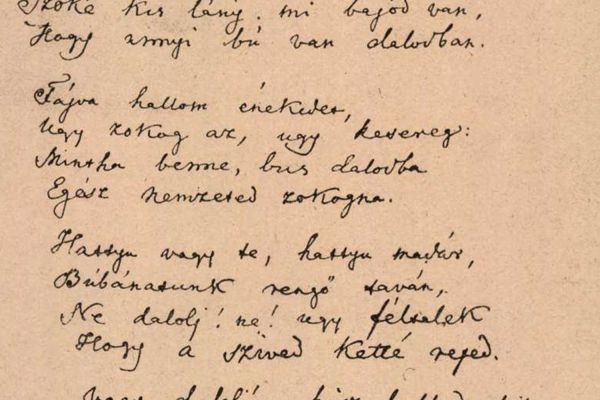 Szőke kis lány, mi bajod van,
Hogy annyi bú van dalodban.
Fájva hallom énekedet,
Ugy zokog az, ugy kesereg:
Mintha benne, bus dalodba
Egész nemzeted zokogna.
Hattyu vagy te, hattyu madár,
Búbánatunk rengő taván,
Ne dalolj! ne! ugy féltelek
Hogy a szived ketté reped.